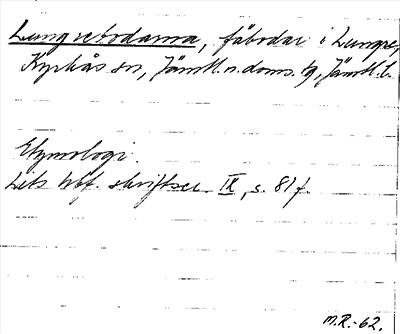 Lungrebodarna, fäbodar i Lungre,
Kyrkås sn, Jämtl. n. doms. tg, Jämtl. l.
Etymologi.
Lits hbf. skriftser. IX, s. 81 f.
M.R.-62.